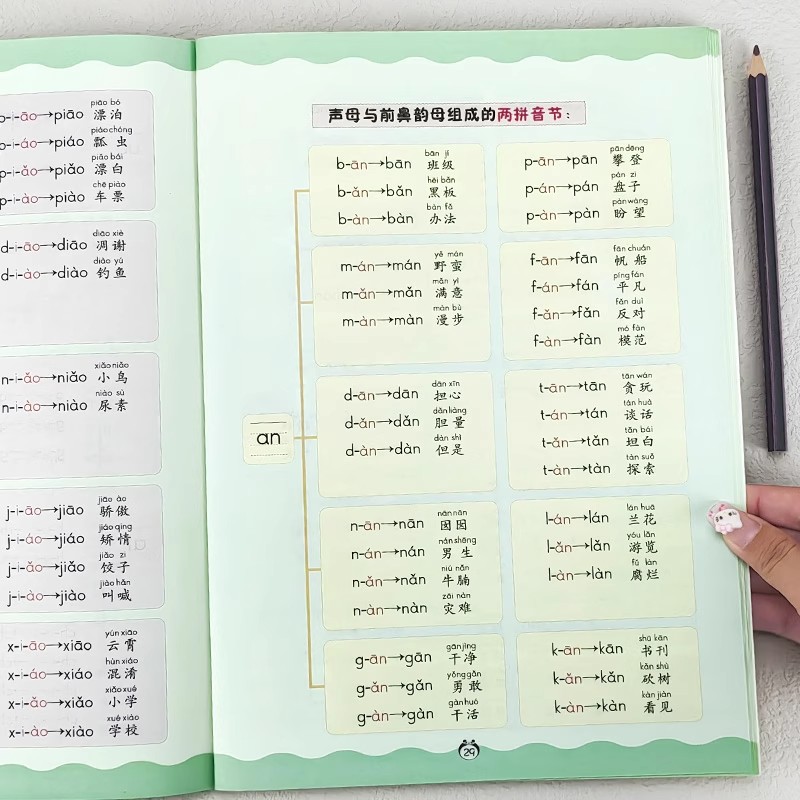 piāo bó
p-i-āo→piāo 漂泊
piáo chóng
p-i-áo→piáo 瓢虫
piǎo bái
p-i-ǎo→piǎo 漂白
chē piào
p-i-ào→piào 车票
diāo xiè
d-i-āo→diāo 凋谢
diào yú
d-i-ào→diào 钓鱼
xiǎo niǎo
n-i-ǎo→niǎo 小鸟
niào sù
n-i-ào→niào 尿素
jiāo ào
j-i-āo→jiāo 骄傲
jiáo qing
j-i-áo→jiáo 矫情
jiǎo zi
j-i-ǎo→jiǎo 饺子
jiào hǎn
j-i-ào→jiào 叫喊
yún xiāo
x-i-āo→xiāo 云霄
hùn xiáo
x-i-áo→xiáo 混淆
xiǎo xué
x-i-ǎo→xiǎo 小学
xué xiào
x-i-ào→xiào 学校
声母与前鼻韵母组成的两拼音节：
an
bān jí
b-ān→bān 班级
hēi bǎn
b-ǎn→bǎn 黑板
bàn fǎ
b-àn→bàn 办法
pān dēng
p-ān→pān 攀登
pán zi
p-án→pán 盘子
pàn wàng
p-àn→pàn 盼望
yě mán
m-án→mán 野蛮
mǎn yì
m-ǎn→mǎn 满意
màn bù
m-àn→màn 漫步
fān chuán
f-ān→fān 帆船
píng fán
f-án→fán 平凡
fǎn duì
f-ǎn→fǎn 反对
mó fàn
f-àn→fàn 模范
dān xīn
d-ān→dān 担心
dǎn liàng
d-ǎn→dǎn 胆量
dàn shì
d-àn→dàn 但是
tān wán
t-ān→tān 贪玩
tán huà
t-án→tán 谈话
tǎn bái
t-ǎn→tǎn 坦白
tàn suǒ
t-àn→tàn 探索
nān nān
n-ān→nān 囡囡
nán shēng
n-án→nán 男生
niú nǎn
n-ǎn→nǎn 牛腩
zāi nàn
n-àn→nàn 灾难
lán huā
l-án→lán 兰花
yóu lǎn
l-ǎn→lǎn 游览
fǔ làn
l-àn→làn 腐烂
gān jìng
g-ān→gān 干净
yǒng gǎn
g-ǎn→gǎn 勇敢
gàn huó
g-àn→gàn 干活
shū kān
k-ān→kān 书刊
kǎn shù
k-ǎn→kǎn 砍树
kàn jiàn
k-àn→kàn 看见
29